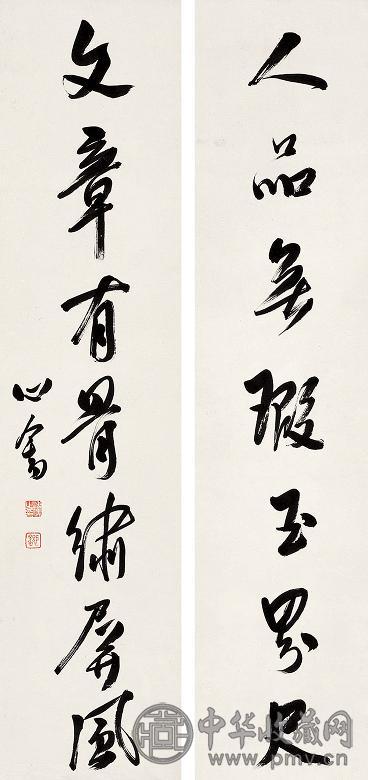 人品無瑕玉界尺
文章有骨繡屏風
心畬
中华收藏网
www.pmv.cn